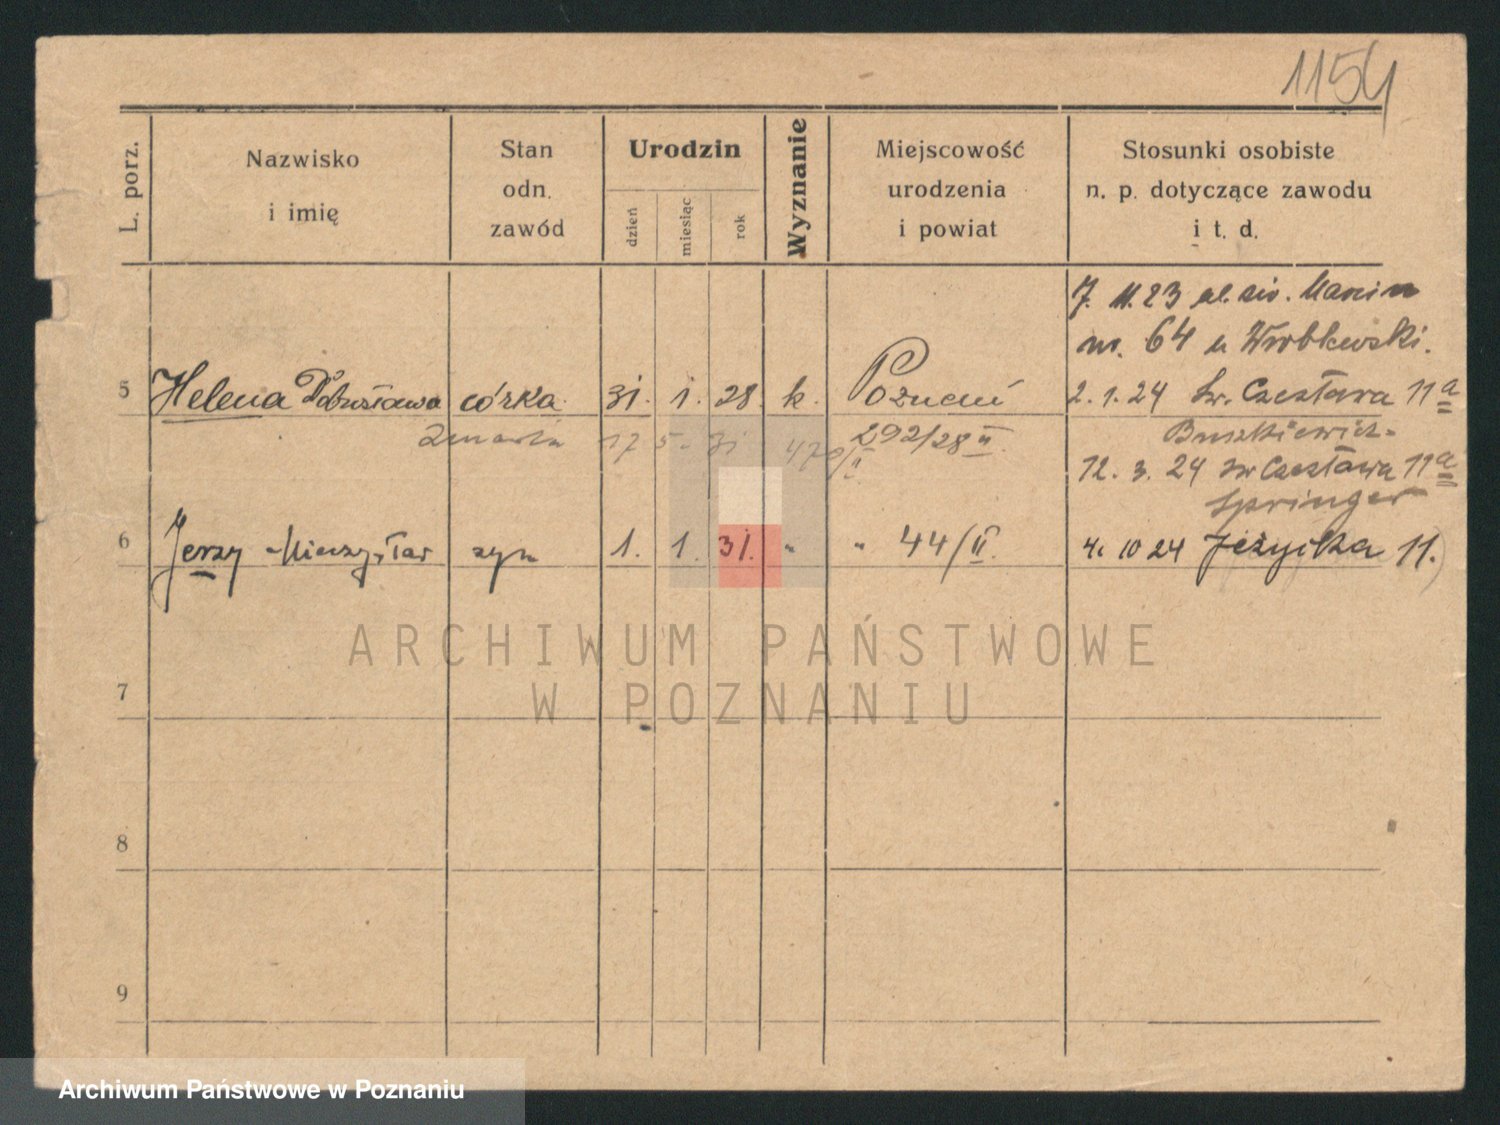 1154
L. porz.
Nazwisko
i imię
Stan
odn.
zawód
Urodzin
dzień
miesiąc
rok
Wyznanie
Miejscowość
urodzenia
i powiat
Stosunki osobiste
n. p. dotyczące zawodu
i t. d.
7. 11. 23 ul. św. Marcin
nr. 64 u Wróblewski.
5 Helena Dobrosława córka 31. 1. 28. k. Poznań
2. 1. 24 św. Czesława 11a
zmarła 17 5. 31 292/28 II
12. 3. 24 św Czesława 11a
Springer
6 Jerzy Mieczysław syn 1. 1. 31. " " 44/II.
4. 10 24 Jeżycka 11.
ARCHIWUM PAŃSTWOWE
W POZNANIU
7
8
9
Archiwum Państwowe w Poznaniu